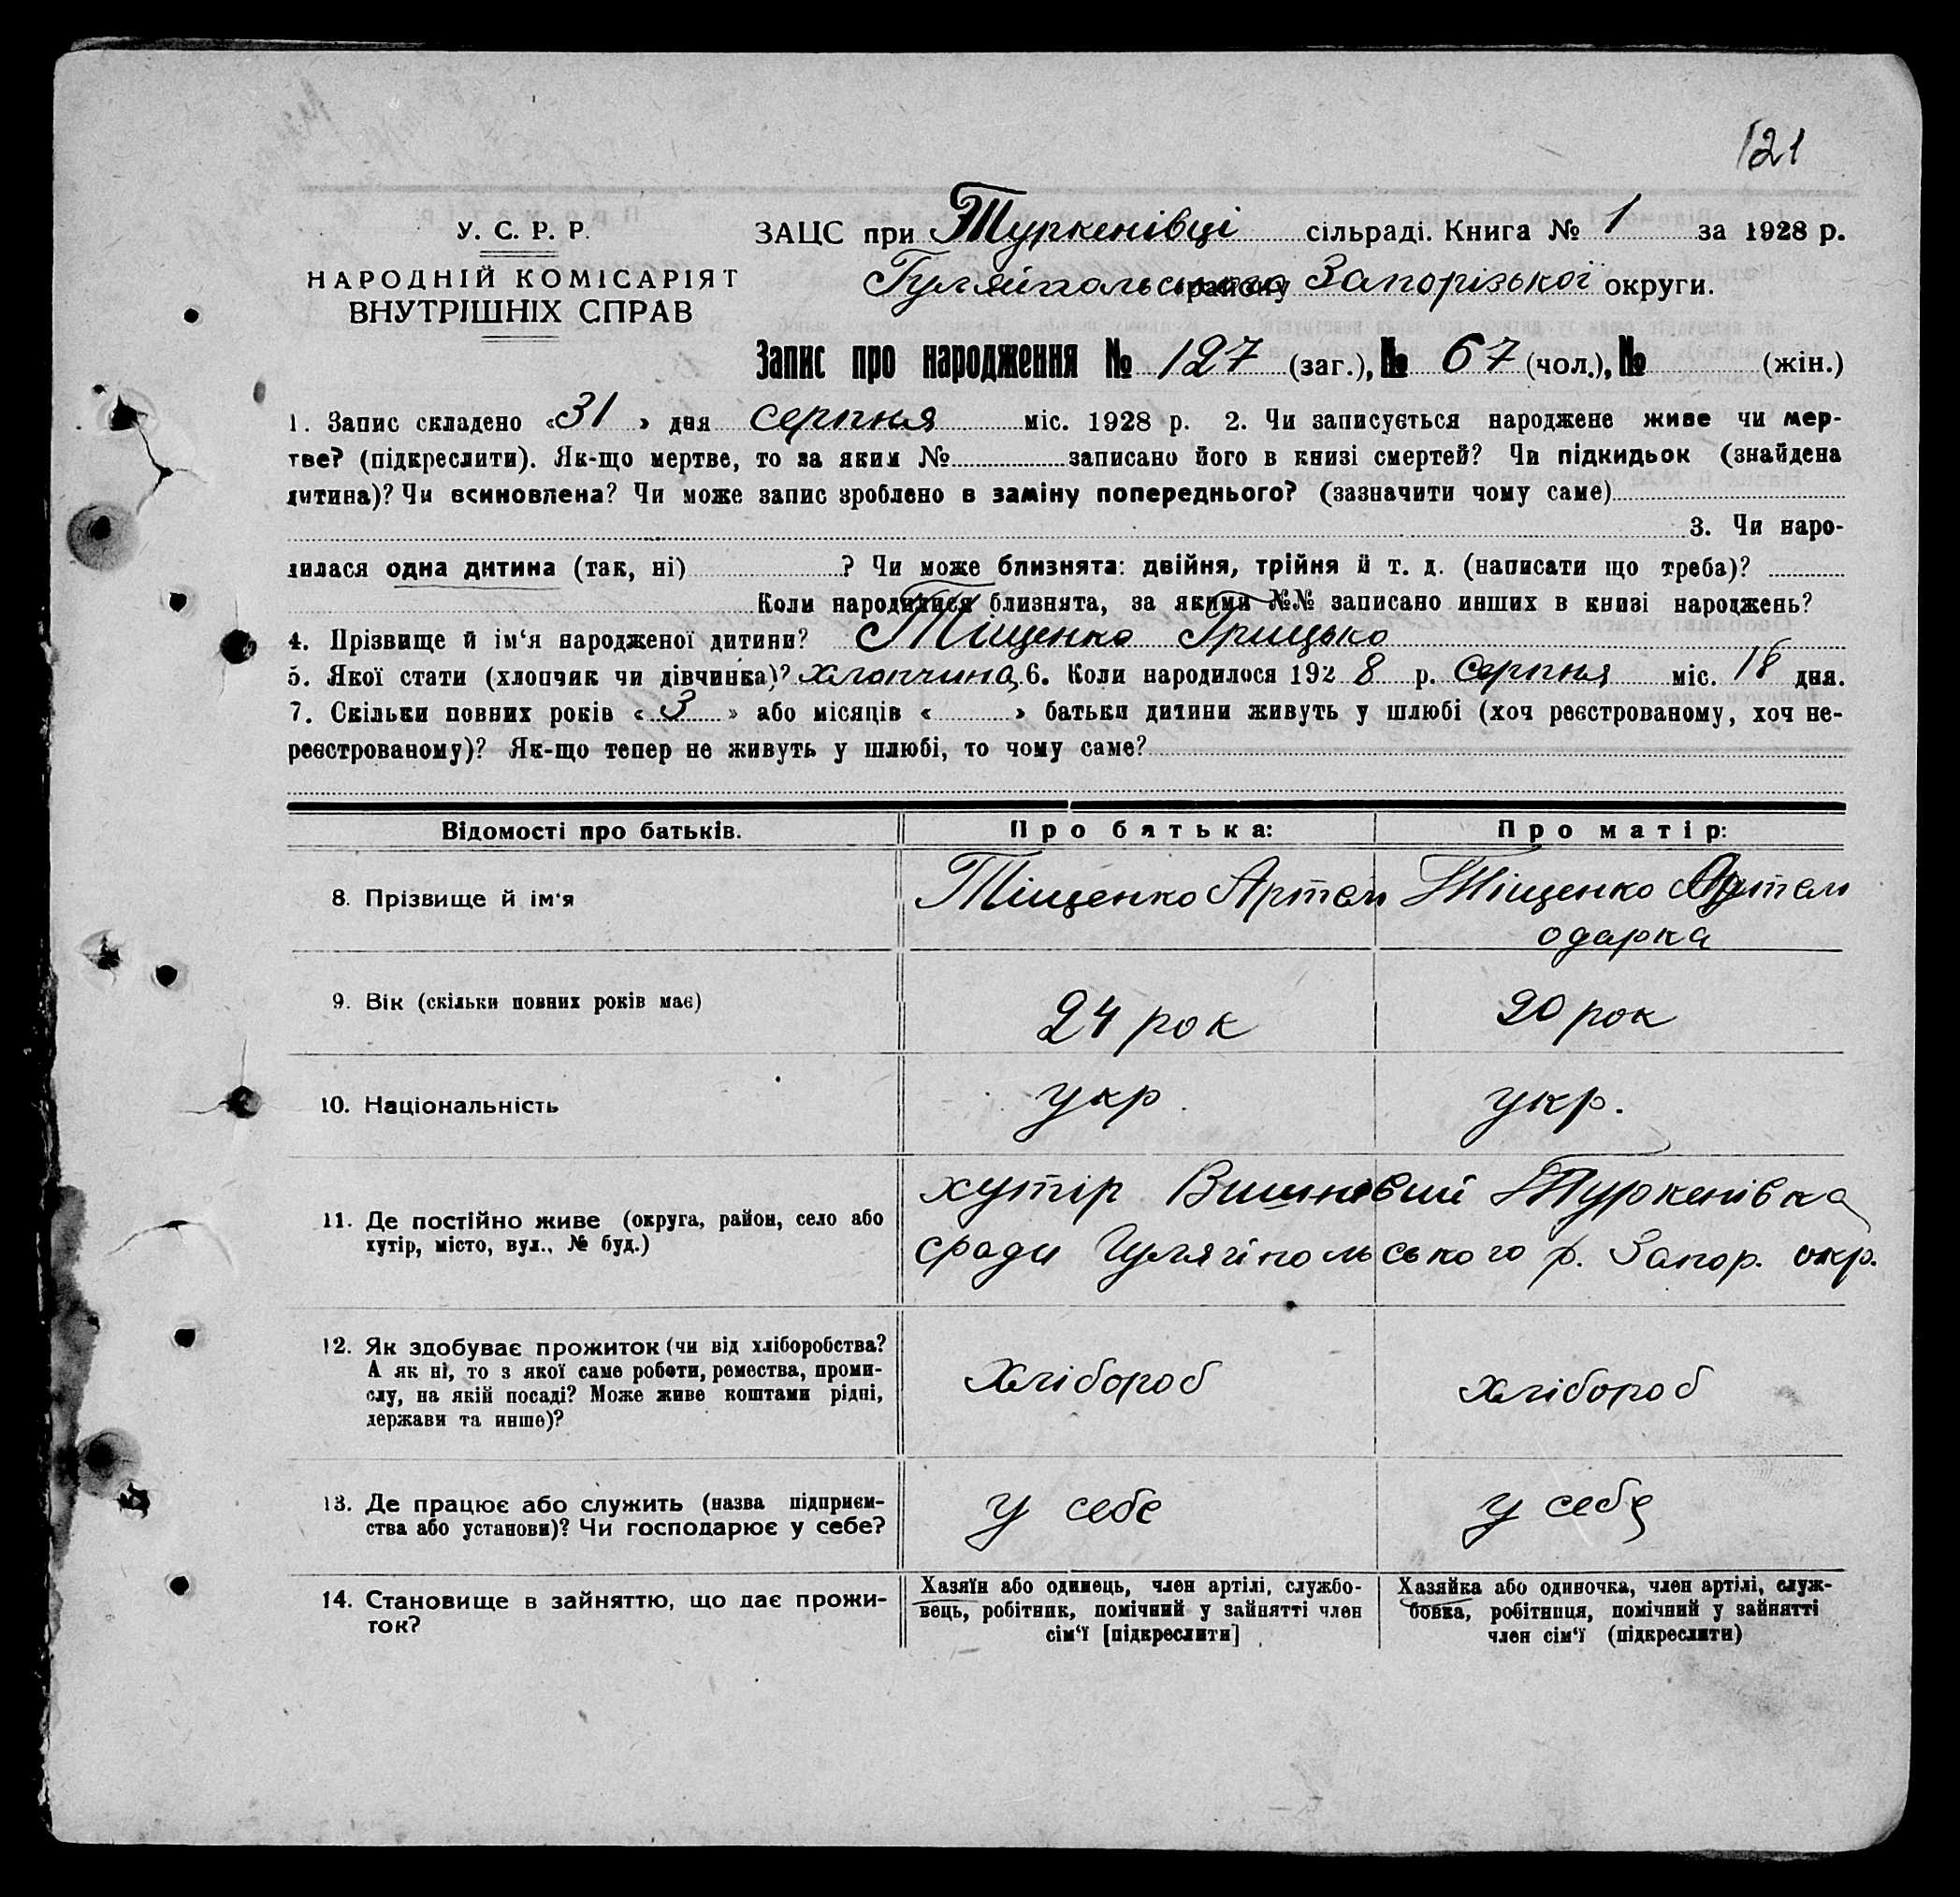 121
У. С. Р. Р.
НАРОДНІЙ КОМІСАРІЯТ
ВНУТРІШНІХ СПРАВ
ЗАЦС при Туркенівці сільраді. Книга № 1 за 1928 р.
Гуляйпольського району Запорізької округи.
Запис про народження № 127 (заг.), № 67 (чол.), № (жін.)
1. Запис складено «31» дня серпня міс. 1928 р. 2. Чи записується народжене живе чи мер-
тве? (підкреслити). Як-що мертве, то за яким № записано його в книзі смертей? Чи підкидьок (знайдена
дитина)? Чи всиновлена? Чи може запис зроблено в заміну попереднього? (зазначити чому саме)
3. Чи наро-
дилася одна дитина (так, ні) ? Чи може близнята: двійня, трійня й т. д. (написати що треба)?
Коли народилися близнята, за якими №№ записано инших в книзі народжень?
4. Прізвище й ім‘я народженої дитини? Тіщенко Грицько
5. Якої стати (хлопчик чи дівчинка)? хлопчина 6. Коли народилося 1928 р. серпня міс. 18 дня.
7. Скільки повних років «3» або місяців « » батьки дитини живуть у шлюбі (хоч реєстрованому, хоч не-
реєстрованому)? Як-що тепер не живуть у шлюбі, то чому саме?
Відомості про батьків. Про батька: Про матір:
8. Прізвище й ім‘я Тіщенко Артем Тіщенко Артем
одарка
9. Вік (скільки повних років має) 24 рок 20 рок
10. Національність укр укр.
11. Де постійно живе (округа, район, село або
хутір, місто, вул., № буд.)
хутір Вишневий Туркенівка
сради Гуляйпольського р. Запор. окр.
12. Як здобуває прожиток (чи від хліборобства?
А як ні, то з якої саме роботи, ремества, проми-
слу, на якій посаді? Може живе коштами рідні,
держави та инше)?
хлібороб хлібороб
13. Де працює або служить (назва підприєм-
ства або установи)? Чи господарює у себе?
у себе у себе
14. Становище в зайняттю, що дає прожи-
ток?
Хазяїн або одинець, член артілі, службо-
вець, робітник, помічний у зайнятті член
сім‘ї [підкреслити]
Хазяйка або одиночка, член артілі, служ-
бовка, робітниця, помічний у зайнятті
член сім‘ї (підкреслити)